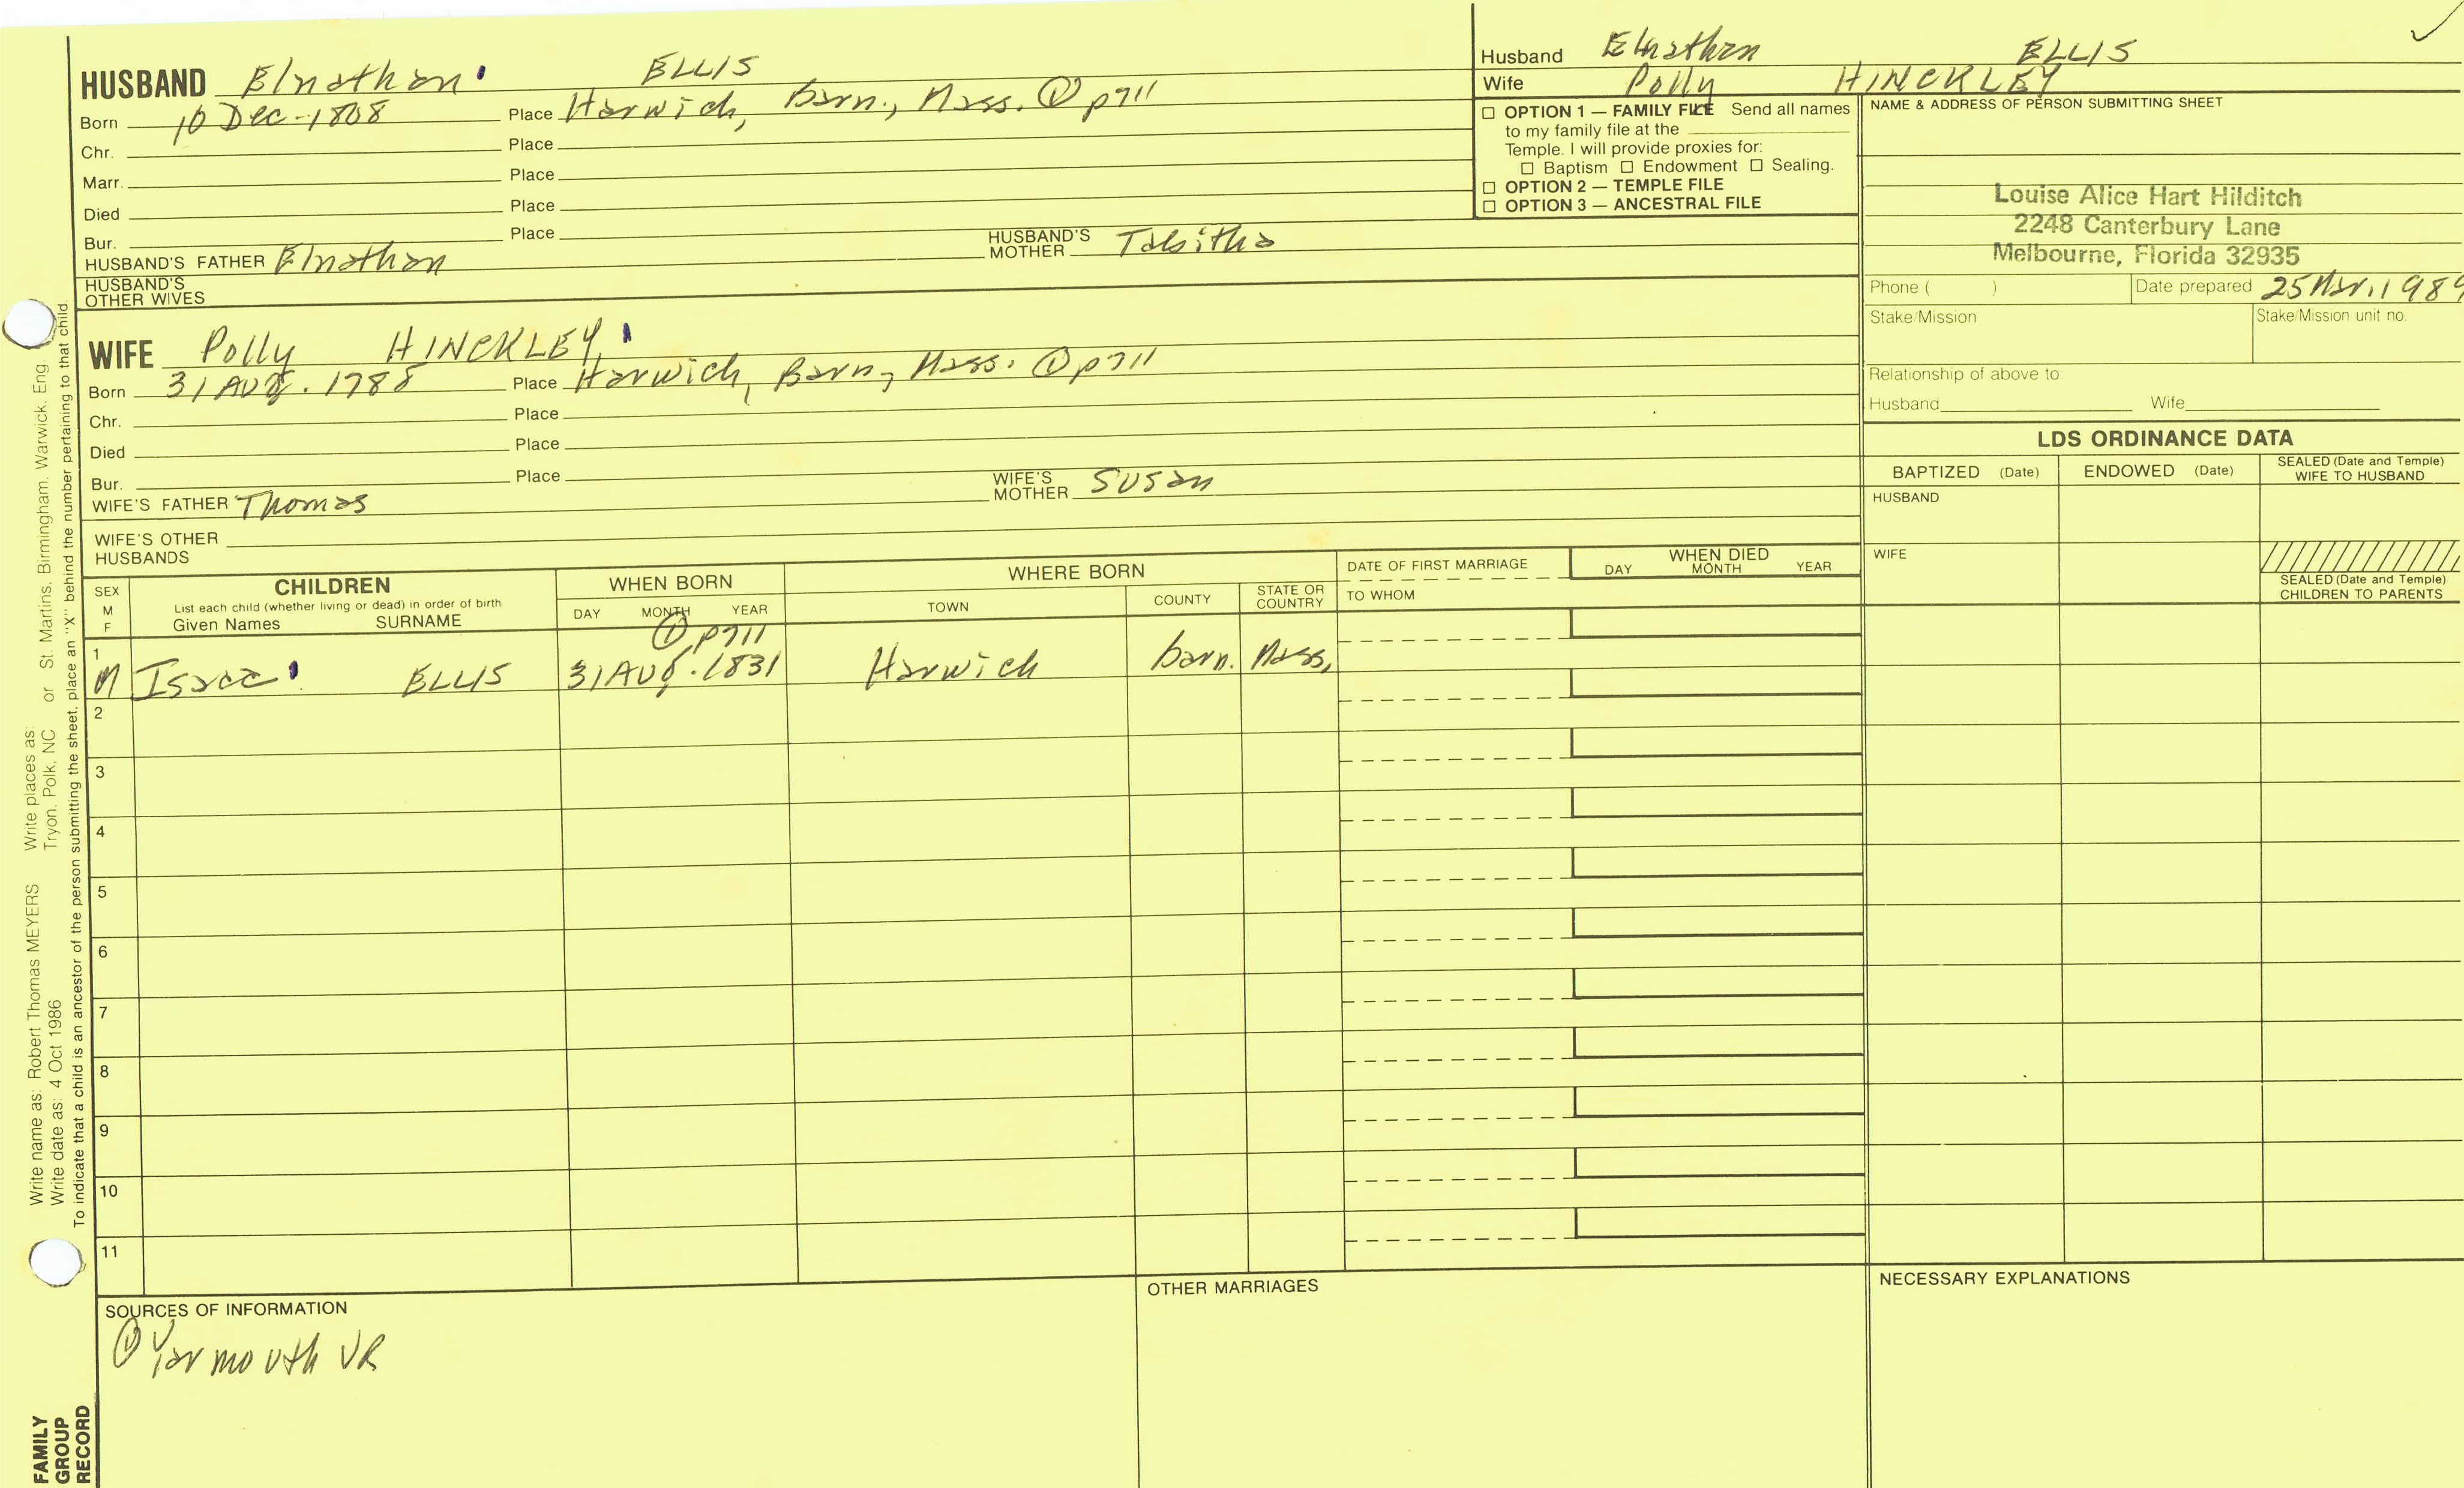 HUSBAND Elnathan ELLIS
Born 10 Dec. 1808 Place Harwich, Barn., Mass. ① p711
Chr. Place
Marr. Place
Died Place
Bur. Place
HUSBAND'S FATHER Elnathan HUSBAND'S MOTHER Tabitha
HUSBAND'S OTHER WIVES
WIFE Polly HINCKLEY
Born 31 Aug. 1788 Place Harwich, Barn, Mass. ① p711
Chr. Place
Died Place
Bur. Place
WIFE'S FATHER Thomas WIFE'S MOTHER Susan
WIFE'S OTHER HUSBANDS
Husband Elnathan ELLIS
Wife Polly HINCKLEY
☐ OPTION 1 — FAMILY FILE Send all names
to my family file at the
Temple. I will provide proxies for:
☐ Baptism ☐ Endowment ☐ Sealing.
☐ OPTION 2 — TEMPLE FILE
☐ OPTION 3 — ANCESTRAL FILE
NAME & ADDRESS OF PERSON SUBMITTING SHEET
Louise Alice Hart Hilditch
2248 Canterbury Lane
Melbourne, Florida 32935
Phone ( ) Date prepared 25 Mar. 1989
Stake/Mission Stake/Mission unit no.
Relationship of above to
Husband Wife
LDS ORDINANCE DATA
BAPTIZED (Date) ENDOWED (Date) SEALED (Date and Temple) WIFE TO HUSBAND
HUSBAND
WIFE
SEALED (Date and Temple) CHILDREN TO PARENTS
SEX M F
CHILDREN
List each child (whether living or dead) in order of birth
Given Names SURNAME
WHEN BORN
DAY MONTH YEAR
WHERE BORN
TOWN COUNTY STATE OR COUNTRY
DATE OF FIRST MARRIAGE
TO WHOM
WHEN DIED
DAY MONTH YEAR
① p711
1 M Isaac ELLIS 31 Aug. 1831 Harwich barn. Mass.
2
3
4
5
6
7
8
9
10
11
SOURCES OF INFORMATION
① Yarmouth VR
OTHER MARRIAGES
NECESSARY EXPLANATIONS
Write name as: Robert Thomas MEYERS Write places as:
Write date as: 4 Oct 1986 Tryon, Polk, NC or St. Martins, Birmingham, Warwick, Eng
To indicate that a child is an ancestor of the person submitting the sheet, place an "X" behind the number pertaining to that child.
FAMILY
GROUP
RECORD